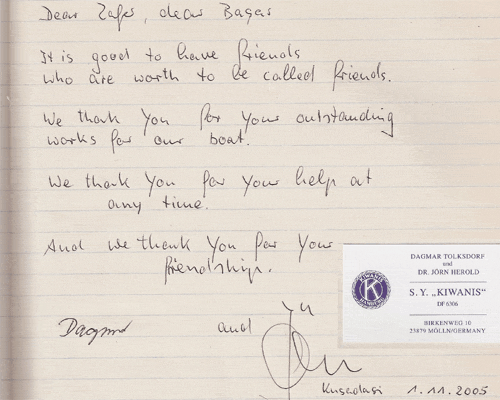 Dear Zafer, dear Başar
It is good to have friends
who are worth to be called friends.
We thank you for your outstanding
works for our boat.
We thank you for your help at
any time.
And we thank you for your
friendship.
Dagmar and Jörn
DAGMAR TOLKSDORF
und
DR. JÖRN HEROLD
S. Y. „KIWANIS"
DF 6306
BIRKENWEG 10
23879 MÖLLN/GERMANY
KIWANIS
K
Kusadasi 1.11.2005